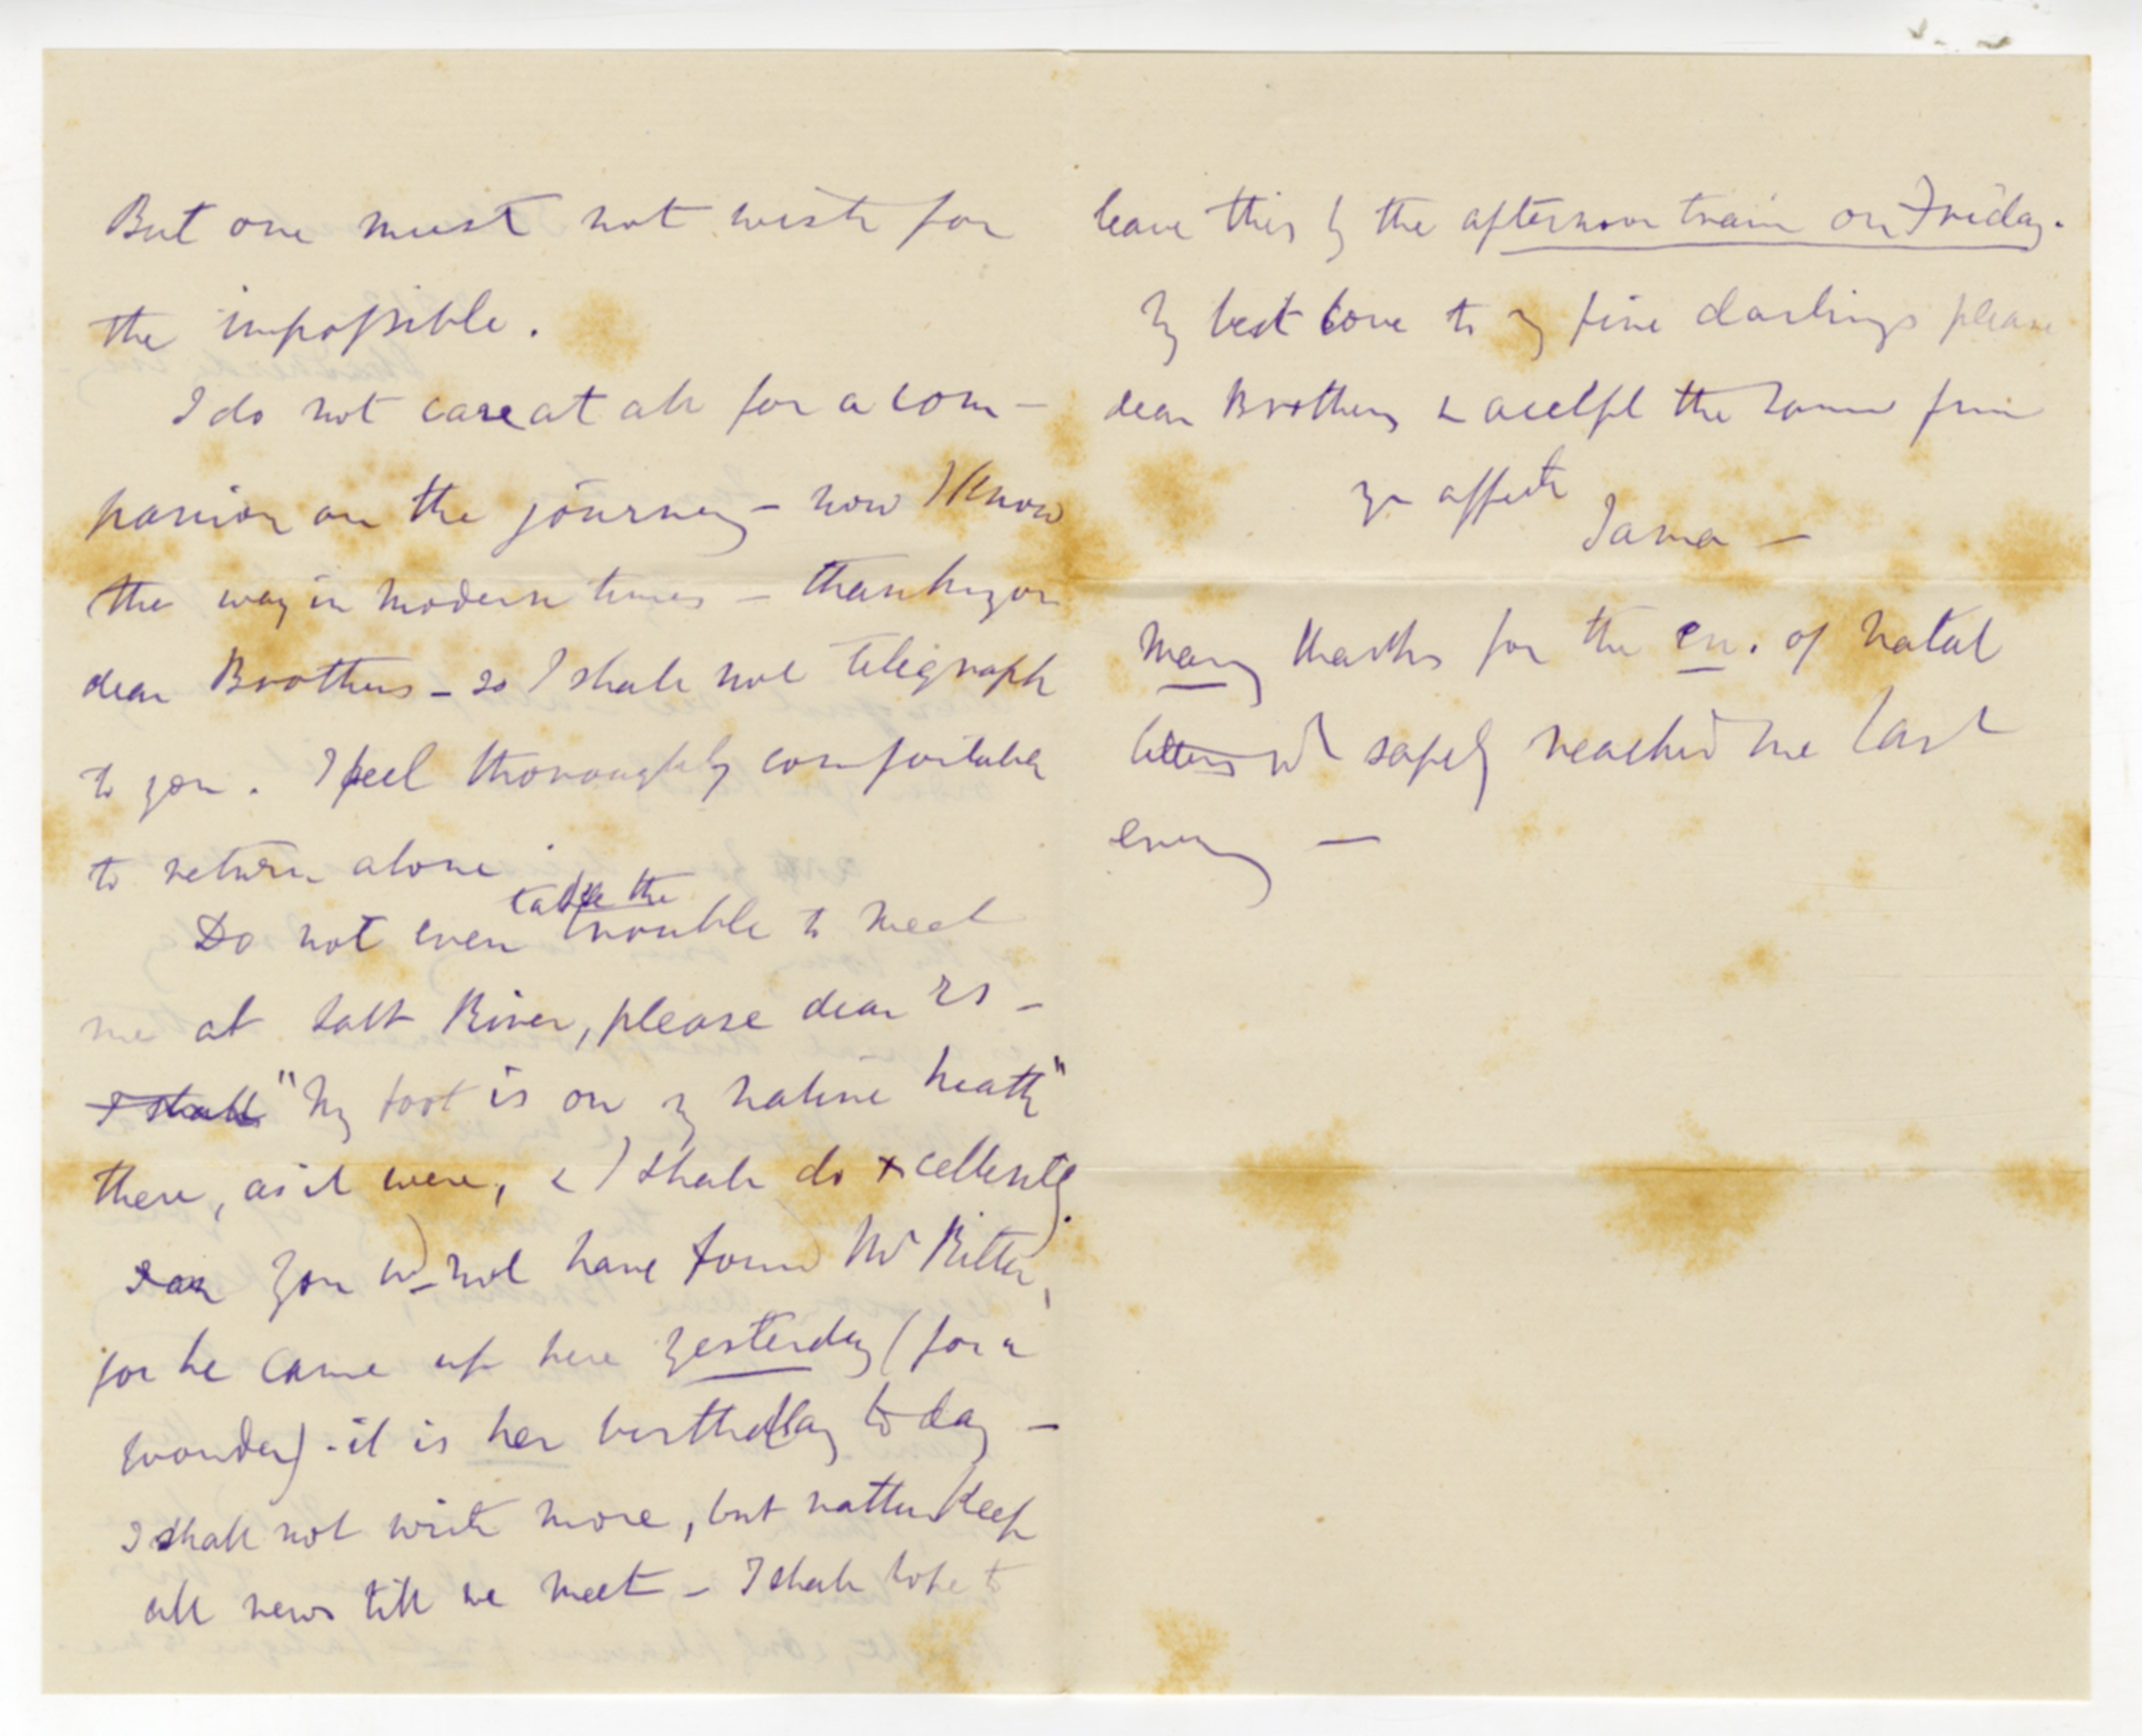 But one must not wish for
the impossible.
I do not care at all for a com-
panion on the journey - now I know
the way in modern times - thank you
dear Brothers - so I shall not telegraph
to you. I feel thoroughly comfortable
to return alone.
take the
Do not even trouble to meet
me at Salt River, please dear Bs -
I shall "My foot is on my native heath"
there, as it were, & I shall do excellently.
You wd not have found Mr Ritter,
for he came up here yesterday (for a
wonder) - it is her birthday to day -
I shall not write more, but rather keep
all news till we meet - I shall hope to
leave this by the afternoon train on Friday.
My best love to my five darlings please
dear Brothers & accept the same from
yr affecte
Jama -
Many thanks for the en. of Natal
letters wh safely reached me last
eveng -